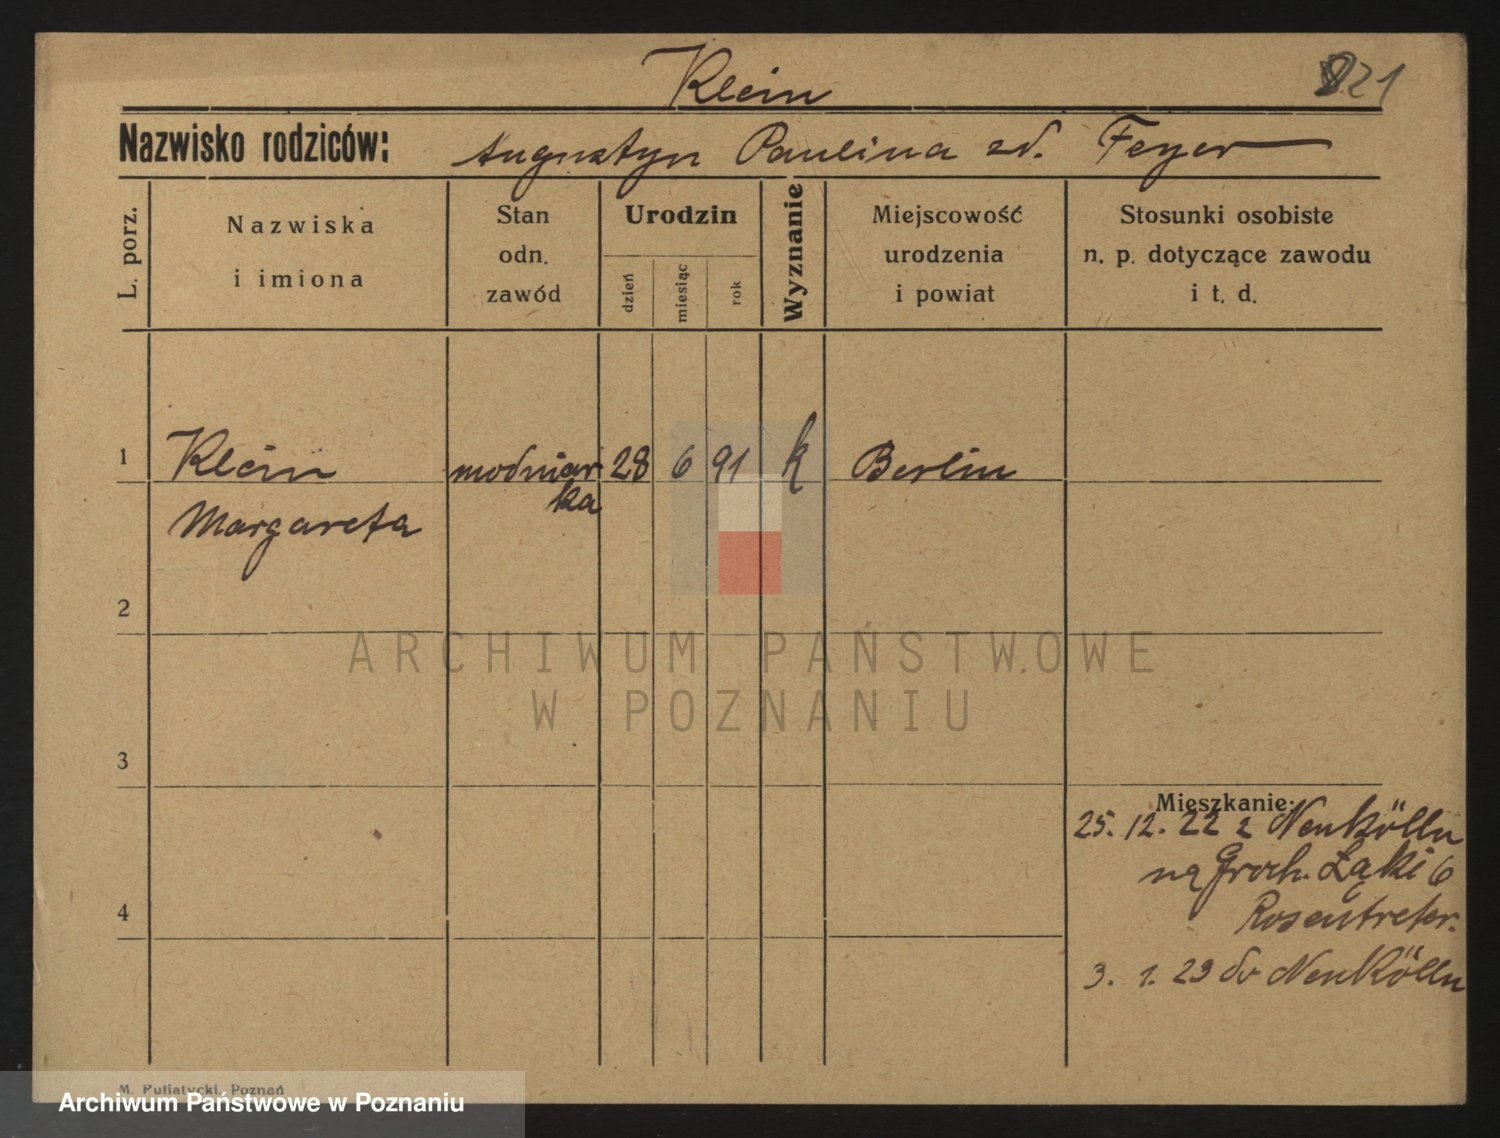 Klein
821
Nazwisko rodziców: Augustyn Paulina zd. Feyer
L. porz.
Nazwiska
i imiona
Stan
odn.
zawód
Urodzin
dzień
miesiąc
rok
Wyznanie
Miejscowość
urodzenia
i powiat
Stosunki osobiste
n. p. dotyczące zawodu
i t. d.
1 Klein modniar 28 6 91 k Berlin
ka
Margareta
2
ARCHIWUM PAŃSTWOWE
W POZNANIU
3
Mieszkanie:
25. 12. 22 z Neukölln
na Groch. Łąki 6
Rosentreter.
4
3. 1. 23 do Neukölln
M. Putiatycki, Poznań
Archiwum Państwowe w Poznaniu